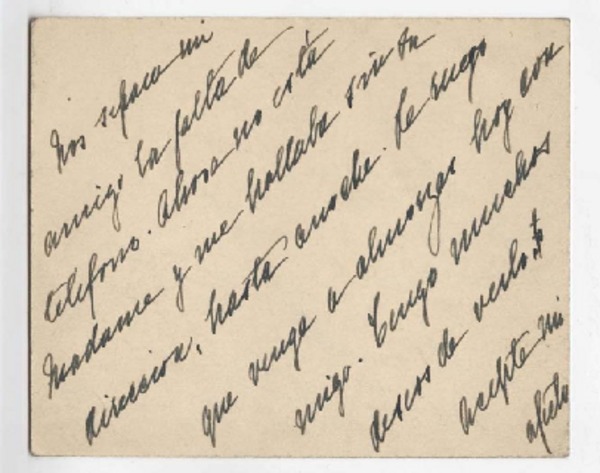 Nos separa mi
amigo la falta de
teléfono. Ahora no está
Madame y me hallaba sin tu
direccion, hasta anoche. Te ruego
que venga a almorzar hoy con
migo. Tengo muchos
deseos de verlo.
Acepte mi
afecto